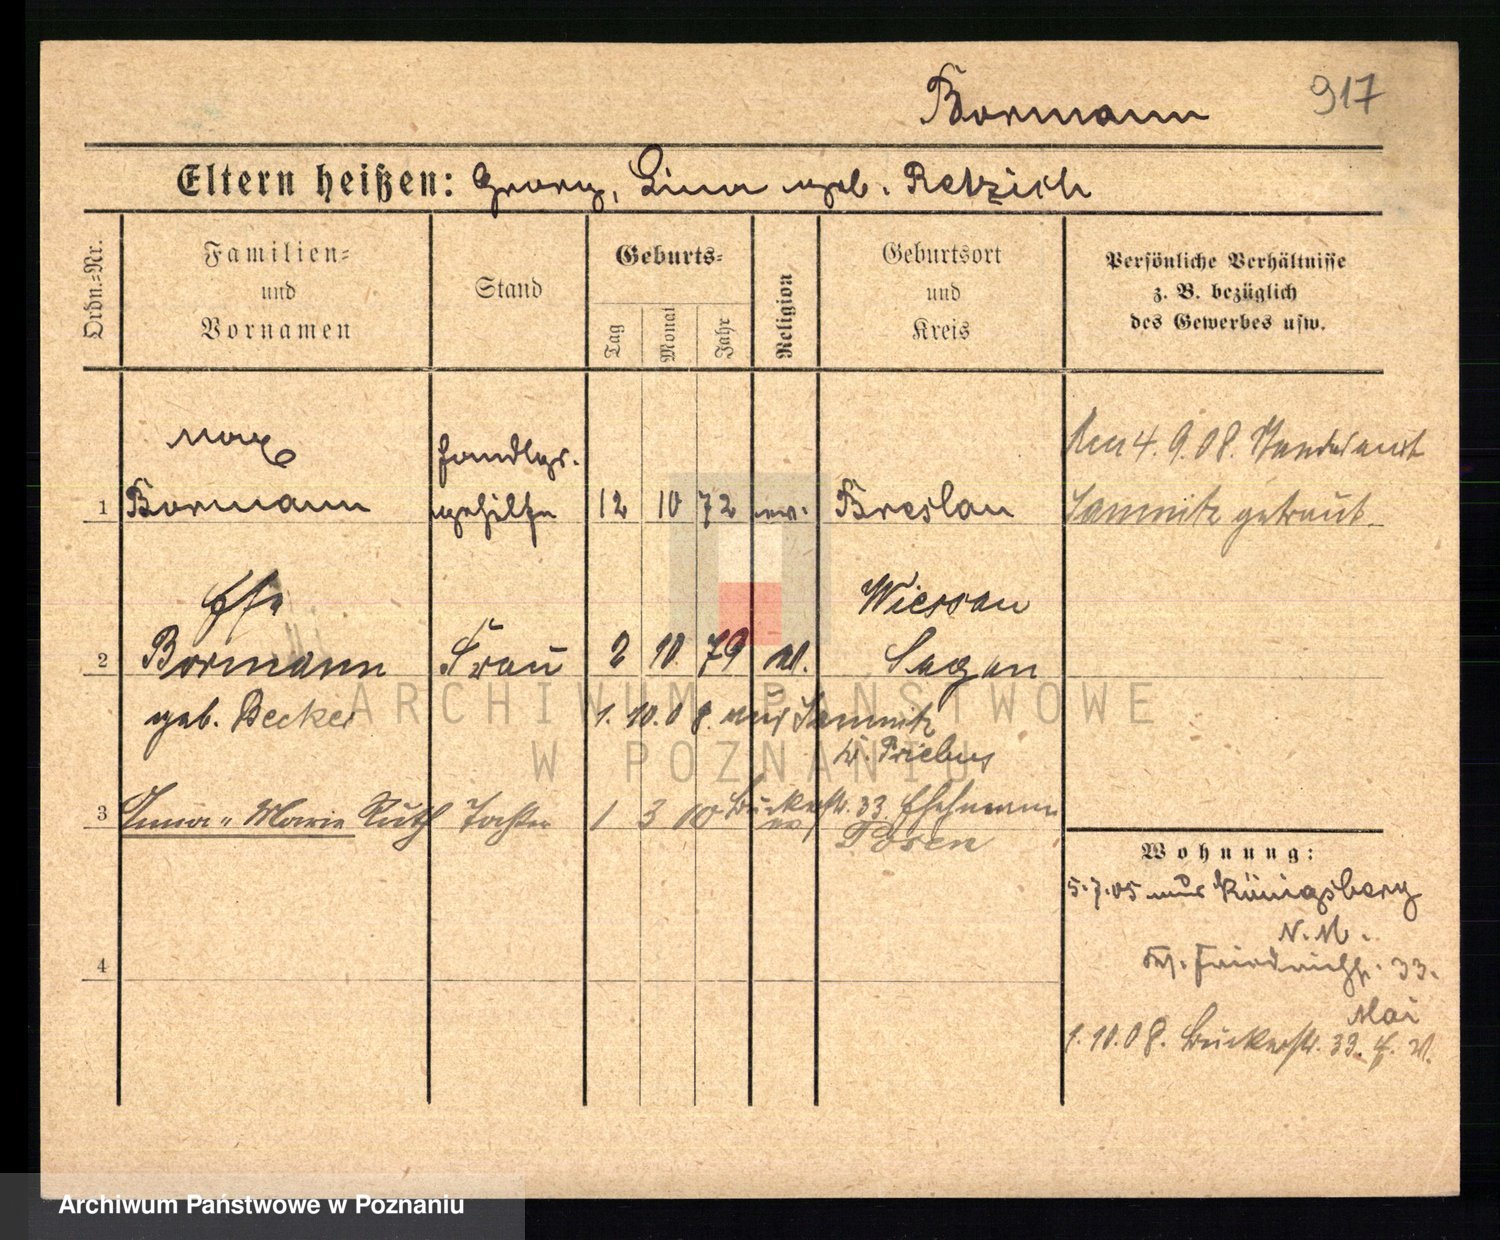 Bormann 917
Eltern heißen: Georg, Lina geb. Retzich
Ordn.=Nr.
Familien=
und
Vornamen
Stand
Geburts=
Tag
Monat
Jahr
Religion
Geburtsort
und
Kreis
Persönliche Verhältnisse
z. B. bezüglich
des Gewerbes usw.
Max
Handlgs.
1 Bormann gehilfe 12 10 72 ev. Breslau
Den 4.9.08. Standesamt
getraut.
Wiessau
2 Bormann Frau 2 10 79 ev. Sagan
geb. Becker 1.10.08. aus
b. Priebus
3 Anna " Marie Ruth Tochter 1 3 10 ev Posen
Buckerstr. 33 Ehemann
Wohnung:
5.7.05 aus Königsberg
N.M.
33.
4
Mai
1.10.08. Buckerstr. 33.
ARCHIWUM PAŃSTWOWE
W POZNANIU
Archiwum Państwowe w Poznaniu